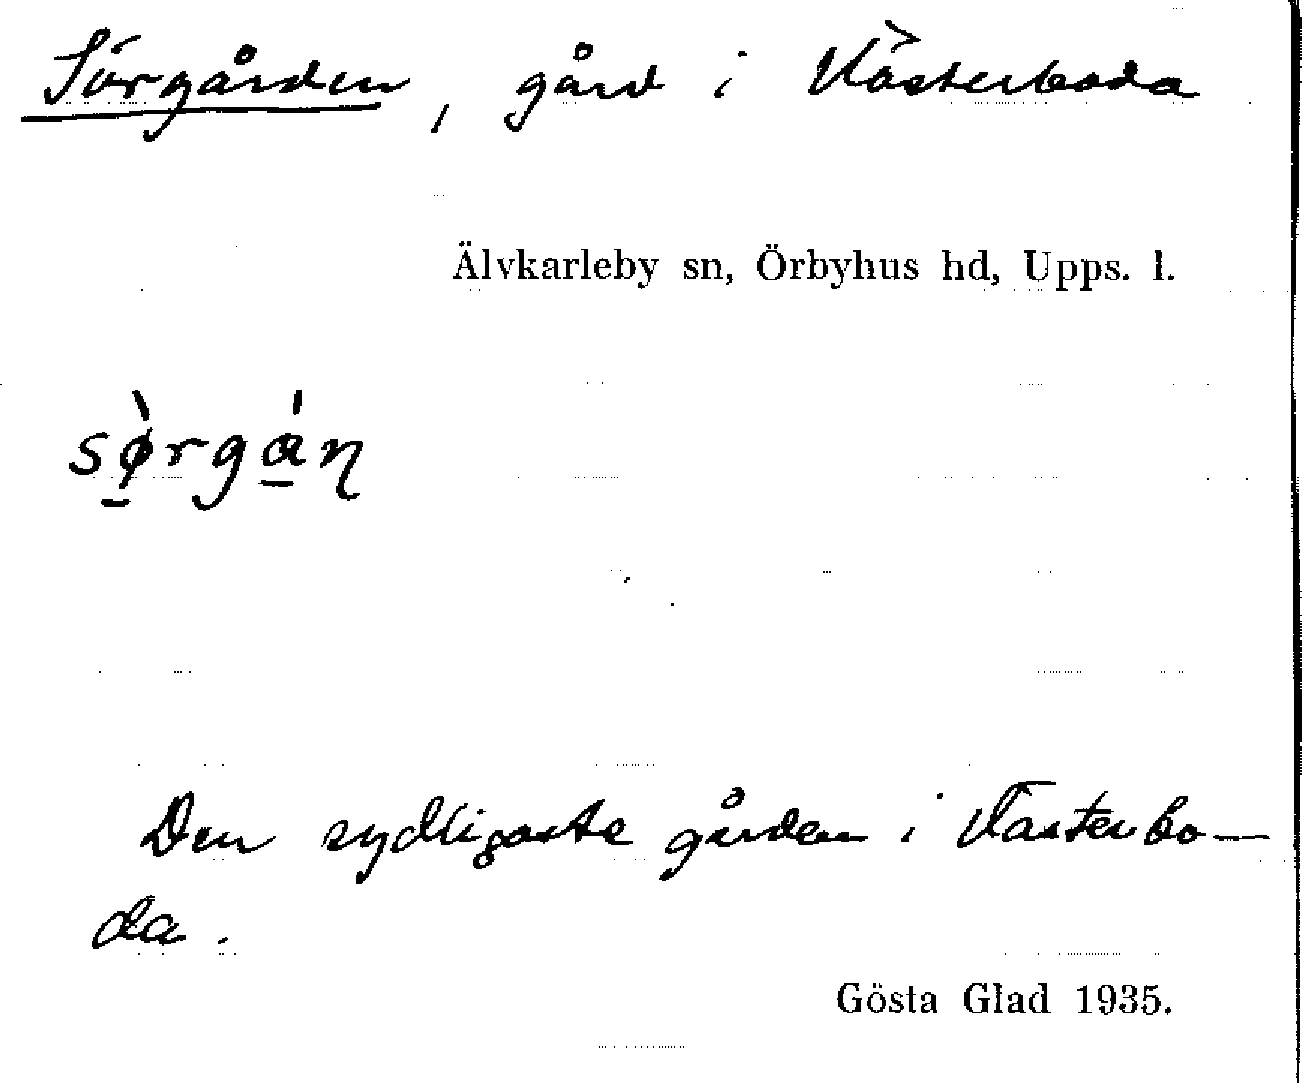 Sörgården, gård i Västerboda
Älvkarleby sn, Örbyhus hd, Upps. l.
sø̠̀rgá̠ɳ
Den sydligaste gården i Västerbo-
da.
Gösta Glad 1935.